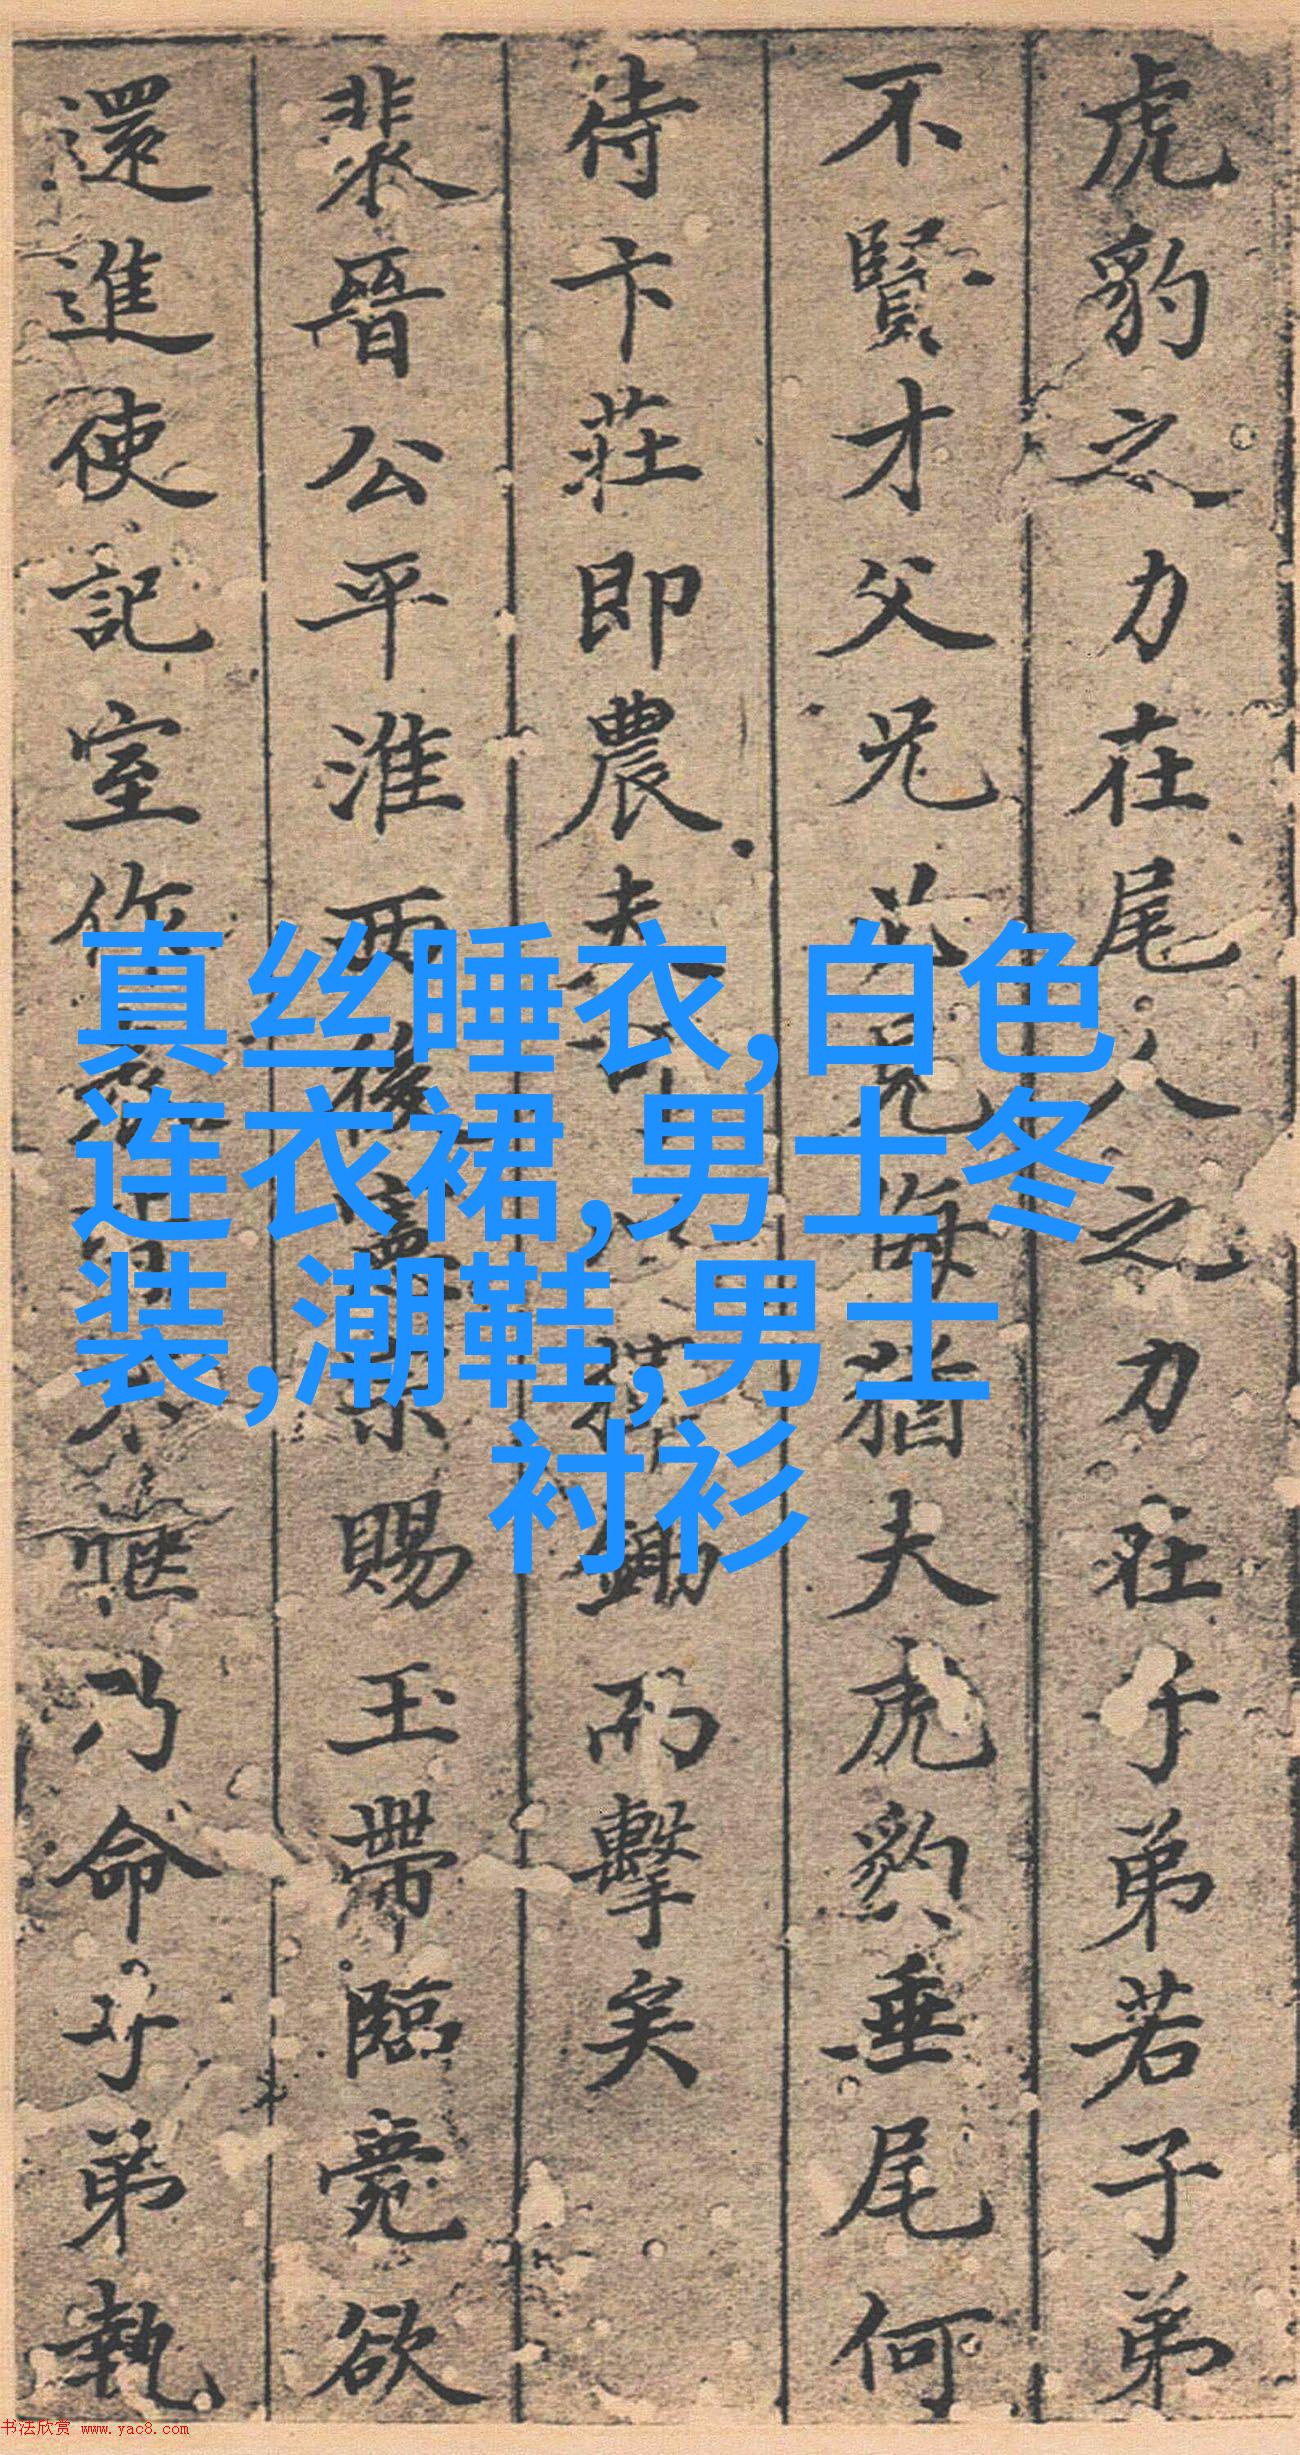 虎豹之力在尾人之力在子弟若子弟
不賢才父兄猶夫虎豹垂尾何
待卞莊即農夫鋤而擊矣
裴晉公平淮西後憲宗賜玉帶臨薨欲
還進使記室作不愜乃命子弟執
真丝睡衣,白色
连衣裙,男士冬
装,潮鞋,男士
衬衫
书法欣赏 www.yac8.com